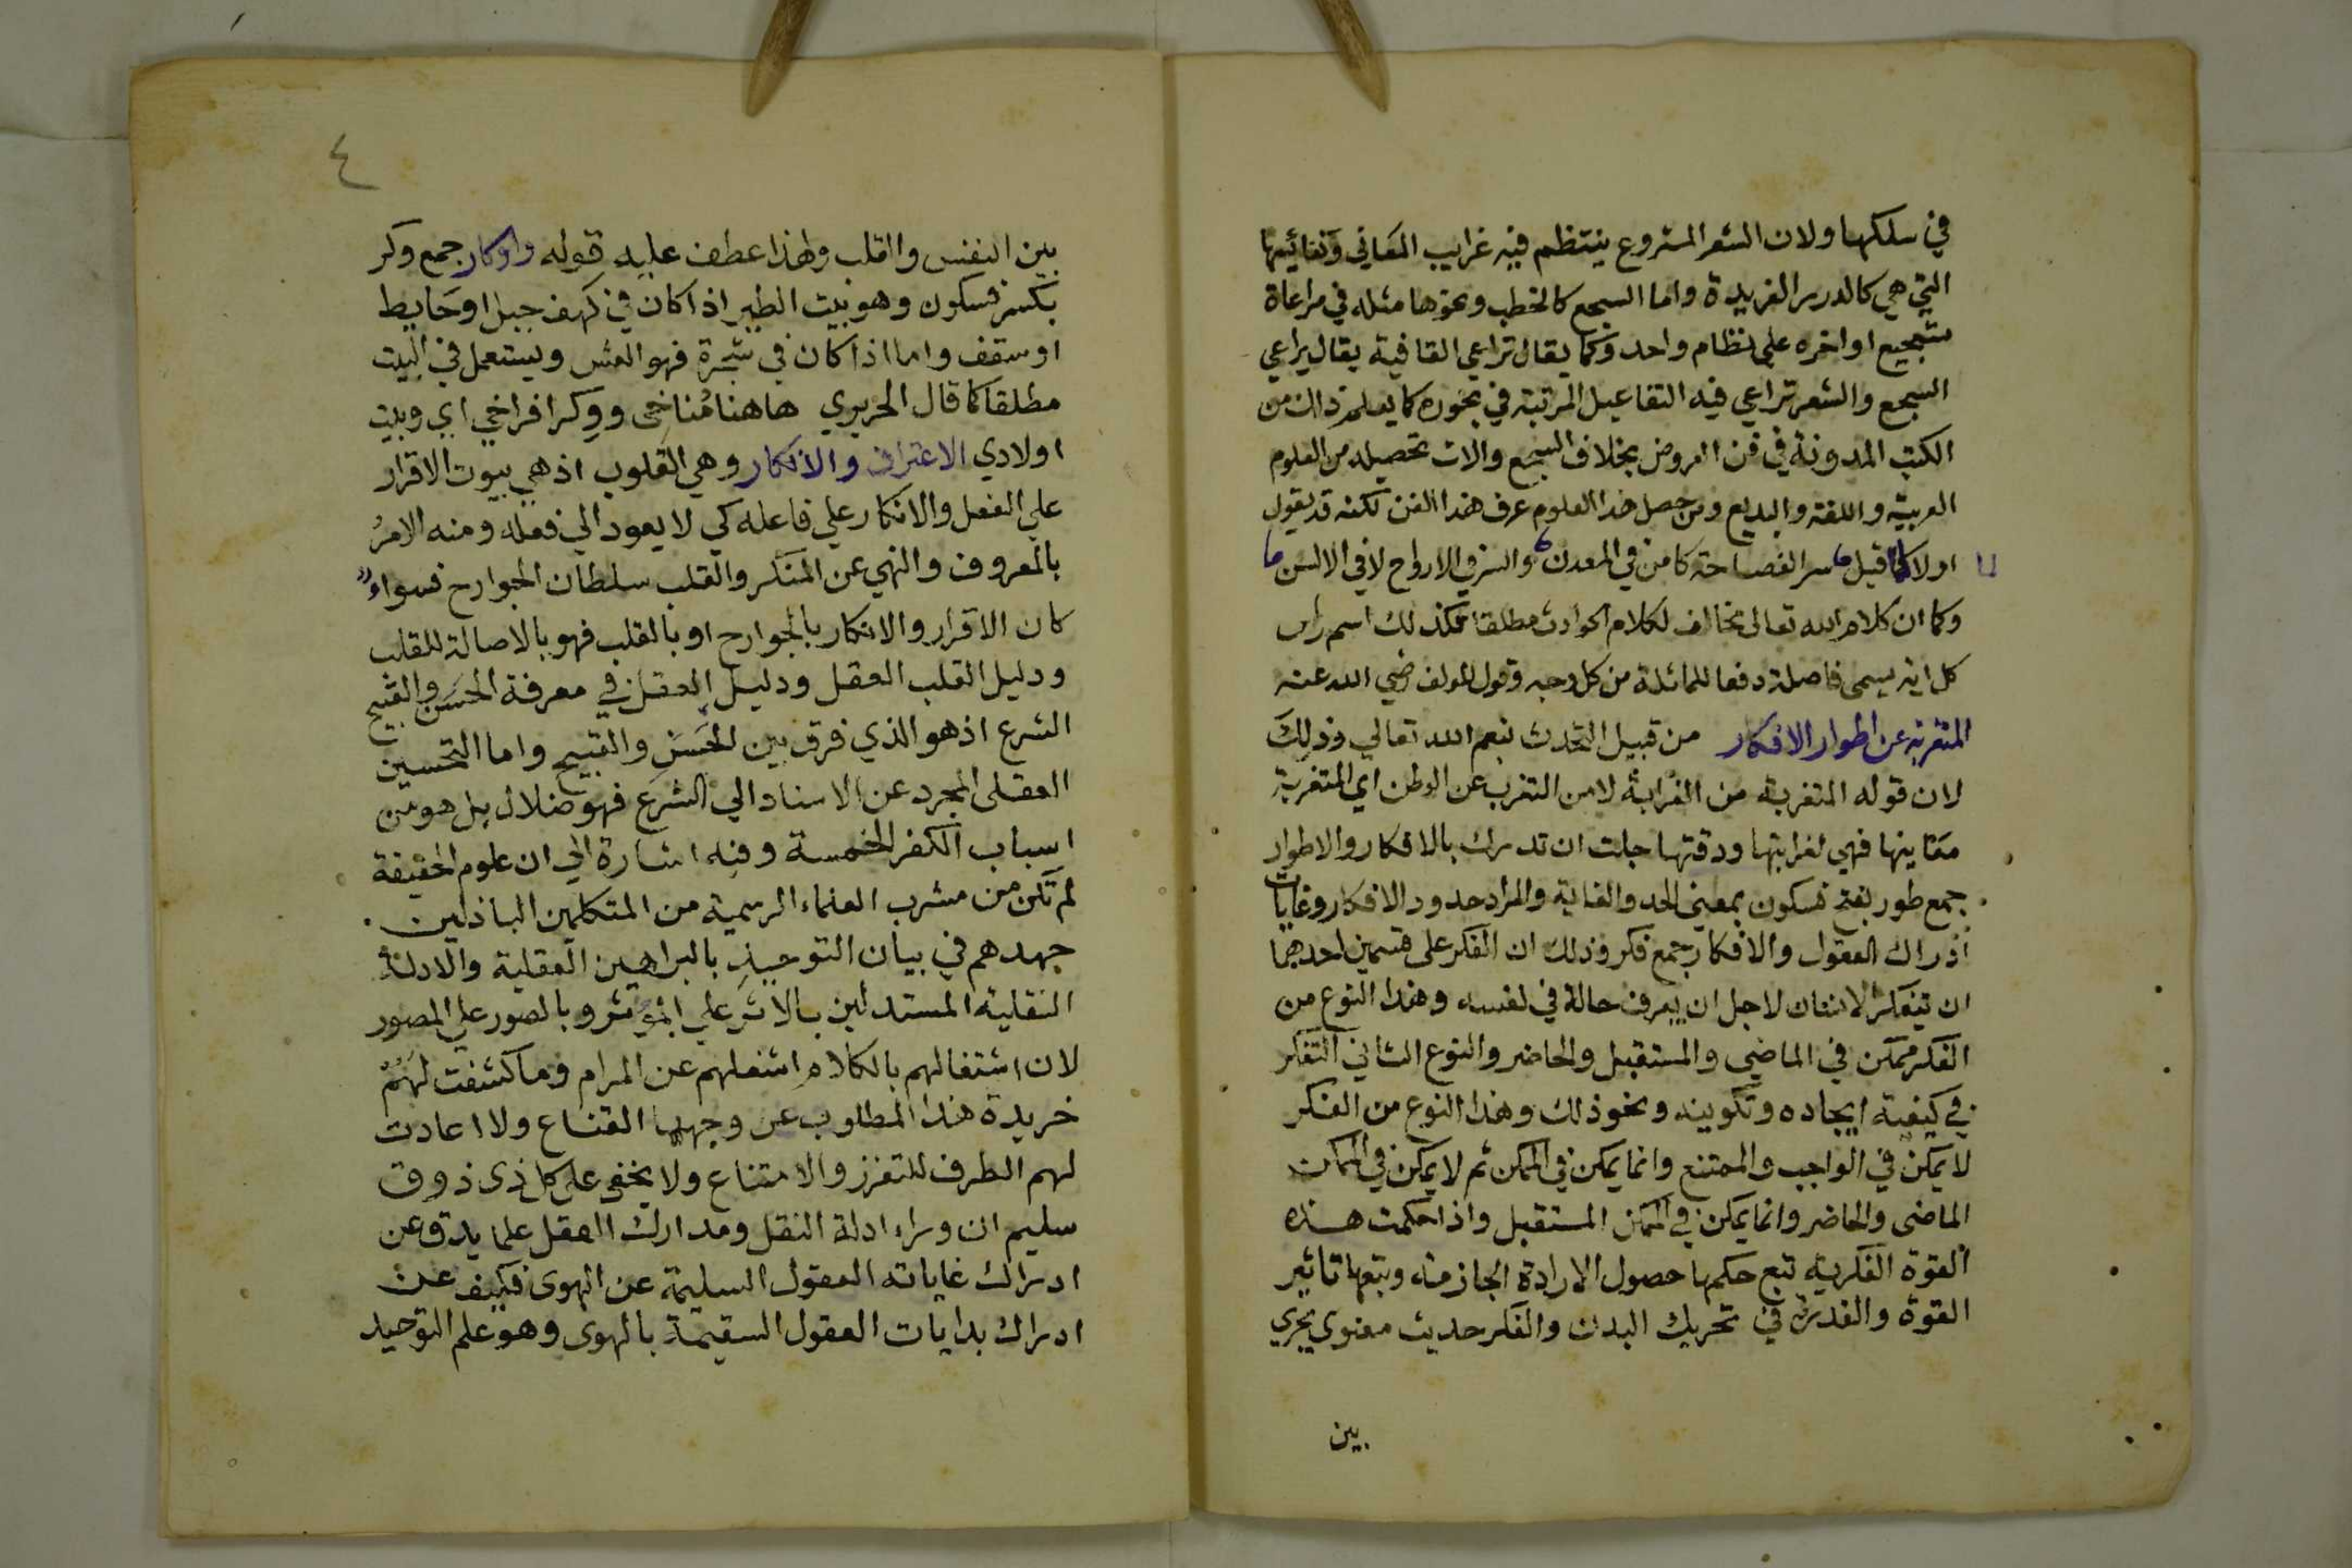 في سلكها ولان الشعر المشروع ينتظم فيه غرايب المعاني ونفائيها
التي هي كالدرر الفريدة واما السجع كالخطب ونحوها مثله في مراعاة
تسجيع اواخره على نظام واحد وكما يقال تراعي القافية يقال يراعي
السجع والشعر تراعي فيه التفاعيل المرتبة في بحوره كما يعلم ذلك من
الكتب المدونة في فن العروض بخلاف السجع والات تحصيله من العلوم
العربية واللغة والبديع ومن حصل هذا العلوم عرف هذا الفن لكنه قد يقول
اولا كما قيل سر الفصاحة كامن في المعدن والسر في الارواح لا في الالسن
وكما ان كلام الله تعالى يخالف لكلام الحوادث مطلقا فكذلك اسم راس
كل اية يسمى فاصلة دفعا للمماثلة من كل وجه وقول المولف رضي الله عنه
المتغربة عن اطوار الافكار من قبيل التحدث بنعم الله تعالي وذلك
لان قوله المتغربة من الغرابة لا من التغرب عن الوطن اي المتغربة
معانيها فهي لغرابتها ودقتها جلت ان تدرك بالافكار والاطوار
جمع طور بفتح فسكون بمعني الحد والغاية والمراد حدود الافكار وغايات
اذراك العقول والافكار جمع فكر وذلك ان الفكر على قسمين احدهما
ان يتفكر الانسان لاجل ان يعرف حالة في نفسه وهذا النوع من
الفكر ممكن في الماضي والمستقبل والحاضر والنوع الثاني التفكر
في كيفية ايجاده وتكوينه ونحو ذلك وهذا النوع من الفكر
لا يمكن في الواجب والممتنع وانما يمكن في الممكن ثم لا يمكن في الممكنات
الماضى والحاضر وانما يمكن في الممكن المستقبل واذا حكمت هذه
القوة الفكرية تبع حكمها حصول الارادة الجازمة وتتبعها تاثير
القوة والقدرة في تحريك البدن والفكر حديث معنوي يجري
بين
٤
بين النفس والقلب ولهذا عطف عليه قوله واوكار جمع وكر
بكسر فسكون وهو بيت الطير اذا كان في كهف جبل او حايط
او سقف واما اذا كان في شجرة فهو العش ويستعمل في البيت
مطلقا كما قال الحريري هاهنا مُناخى ووكر افراخي اي وبيت
اولادي الاعتراف والانكار وهي القلوب اذ هي بيوت الاقرار
علي الفعل والانكار علي فاعله كي لا يعود الي فعله ومنه الامرُ
بالمعروف والنهي عن المنكر والقلب سلطان الجوارح فسواء
كان الاقرار والانكار بالجوارح او بالقلب فهو بالاصالة للقلب
ودليل القلب العقل ودليل العقل في معرفة الحسَن والقبيح
الشرع اذ هو الذي فرق بين الحسَن والقبيح واما التحسين
العقلى المجرد عن الاسناد الي الشرع فهو ضلال بل هو من
اسباب الكفر الخمسة وفيه اشارة الي ان علوم الحقيقة
لم تكن من مشرب العلماء الرسمية من المتكلمين الباذلين
جهدهم في بيان التوحيد بالبراهين العقلية والادلة
النقلية المستدلين بالاثر علي المؤثر وبالصور علي المصور
لان اشتغالهم بالكلام اشغلهم عن المرام وما كشفت لهم
خريدة هذا المطلوب عن وجهها القناع ولا اعادت
لهم الطرف للتعزز والامتناع ولا يخفى على كل ذى ذوق
سليم ان وراء ادلة النقل ومدارك العقل علما يدق عن
ادراك غاياته العقول السليمة عن الهوى فكيف عن
ادراك بدايات العقول السقيمة بالهوى وهو علم التوحيد